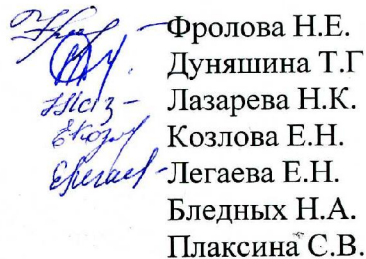 Фролова Н.Е.
Дуняшина Т.Г
Лазарева Н.К.
Козлова Е.Н.
Легаева Е.Н.
Бледных Н.А.
Плаксина С.В.